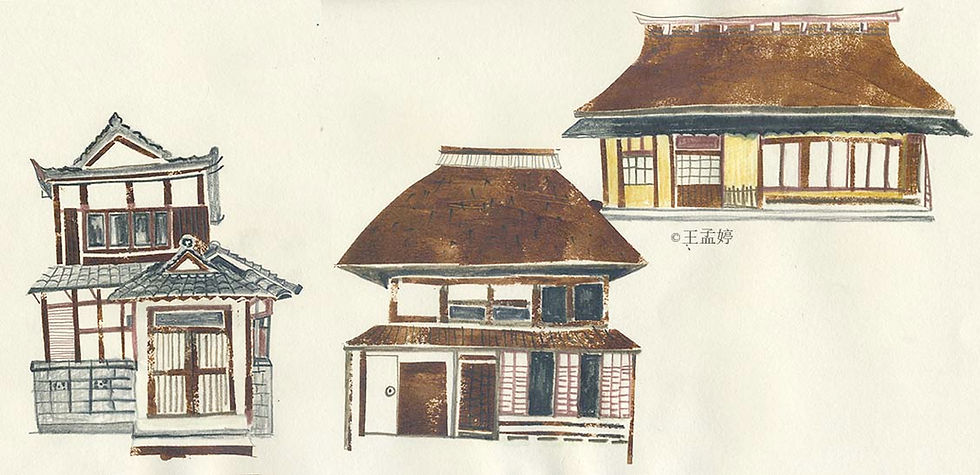 ©王孟婷